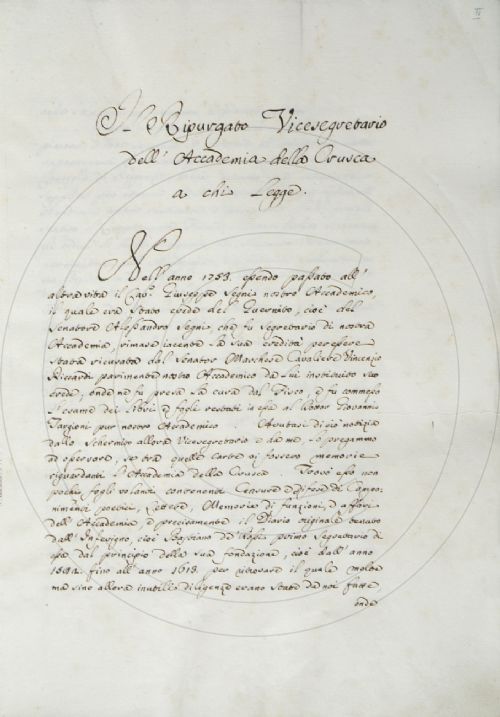 Il Ripurgato Vicesegretario
dell' Accademia della Crusca
a chi Legge.
Nell' anno 1753. essendo passato all'
altra vita il Cav. Giuseppe Segni nostro Accademico,
il quale era stato erede del Guernito, cioè del
Senatore Alessandro Segni, che fu Segretario di nostra
Accademia, rimase jacente la sua eredità per essere
stata ricusata dal Senator Marchese Cavaliere Vincenzio
Riccardi parimente nostro Accademico da lui instituito suo
erede; onde ne fu presa la cura dal Fisco, e fu commesso
l'esame dei libri e fogli restanti in essa al Dottor Giovanni
Targioni pur nostro Accademico. Avutasi di ciò notizia
dallo Schermito allora Vicesegretario e da me, lo pregammo
ad osservare, se tra quelle Carte vi fossero memorie
riguardanti l'Accademia della Crusca. Trovò esso non
pochi fogli volanti contenenti Censure e difese di Compo-
nimenti poetici, Lettere, Memorie di funzioni, e affari
dell' Accademia, e precisamente il Diario originale tenuto
dall' Inferigno, cioè Bastiano de' Rossi primo Segretario di
essa dal principio della sua fondazione, cioè dall' anno
fino all' anno 1613. per ritrovare il quale molte
ma sino allora inutili diligenze erano state da noi fatte,
onde